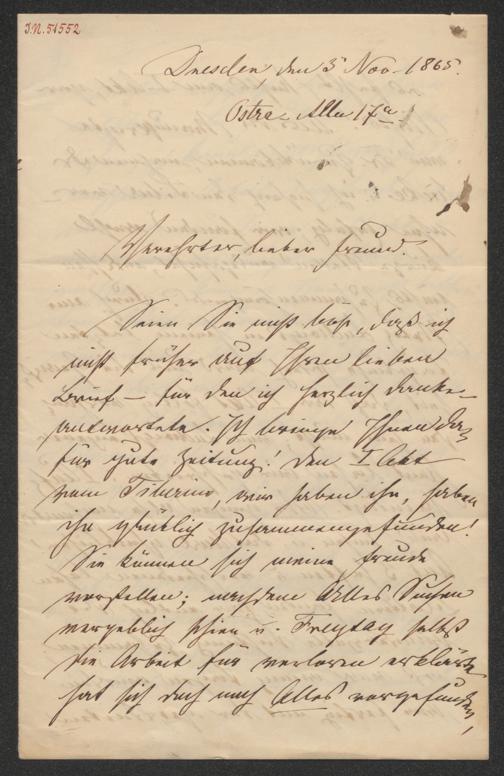 J.N. 51552
Dresden, den 3 Nov. 1865.
Ostra Allee 17a.
Verehrter, lieber Freund.
Seien Sie nicht bös, daß ich
nicht früher auf Ihren lieben
Brief – für den ich herzlich danke –
antwortete. Ich bringe Ihnen da-
für gute Zeitung! Den I Akt
vom Tiberius, wir haben ihn, haben
ihn glücklich zusammengefunden!
Sie können sich meine Freude
vorstellen; nachdem Alles Suchen
vergeblich schien u. Freytag selbst
die Arbeit für verloren erklärte
hat sich doch noch Alles vorgefunden,